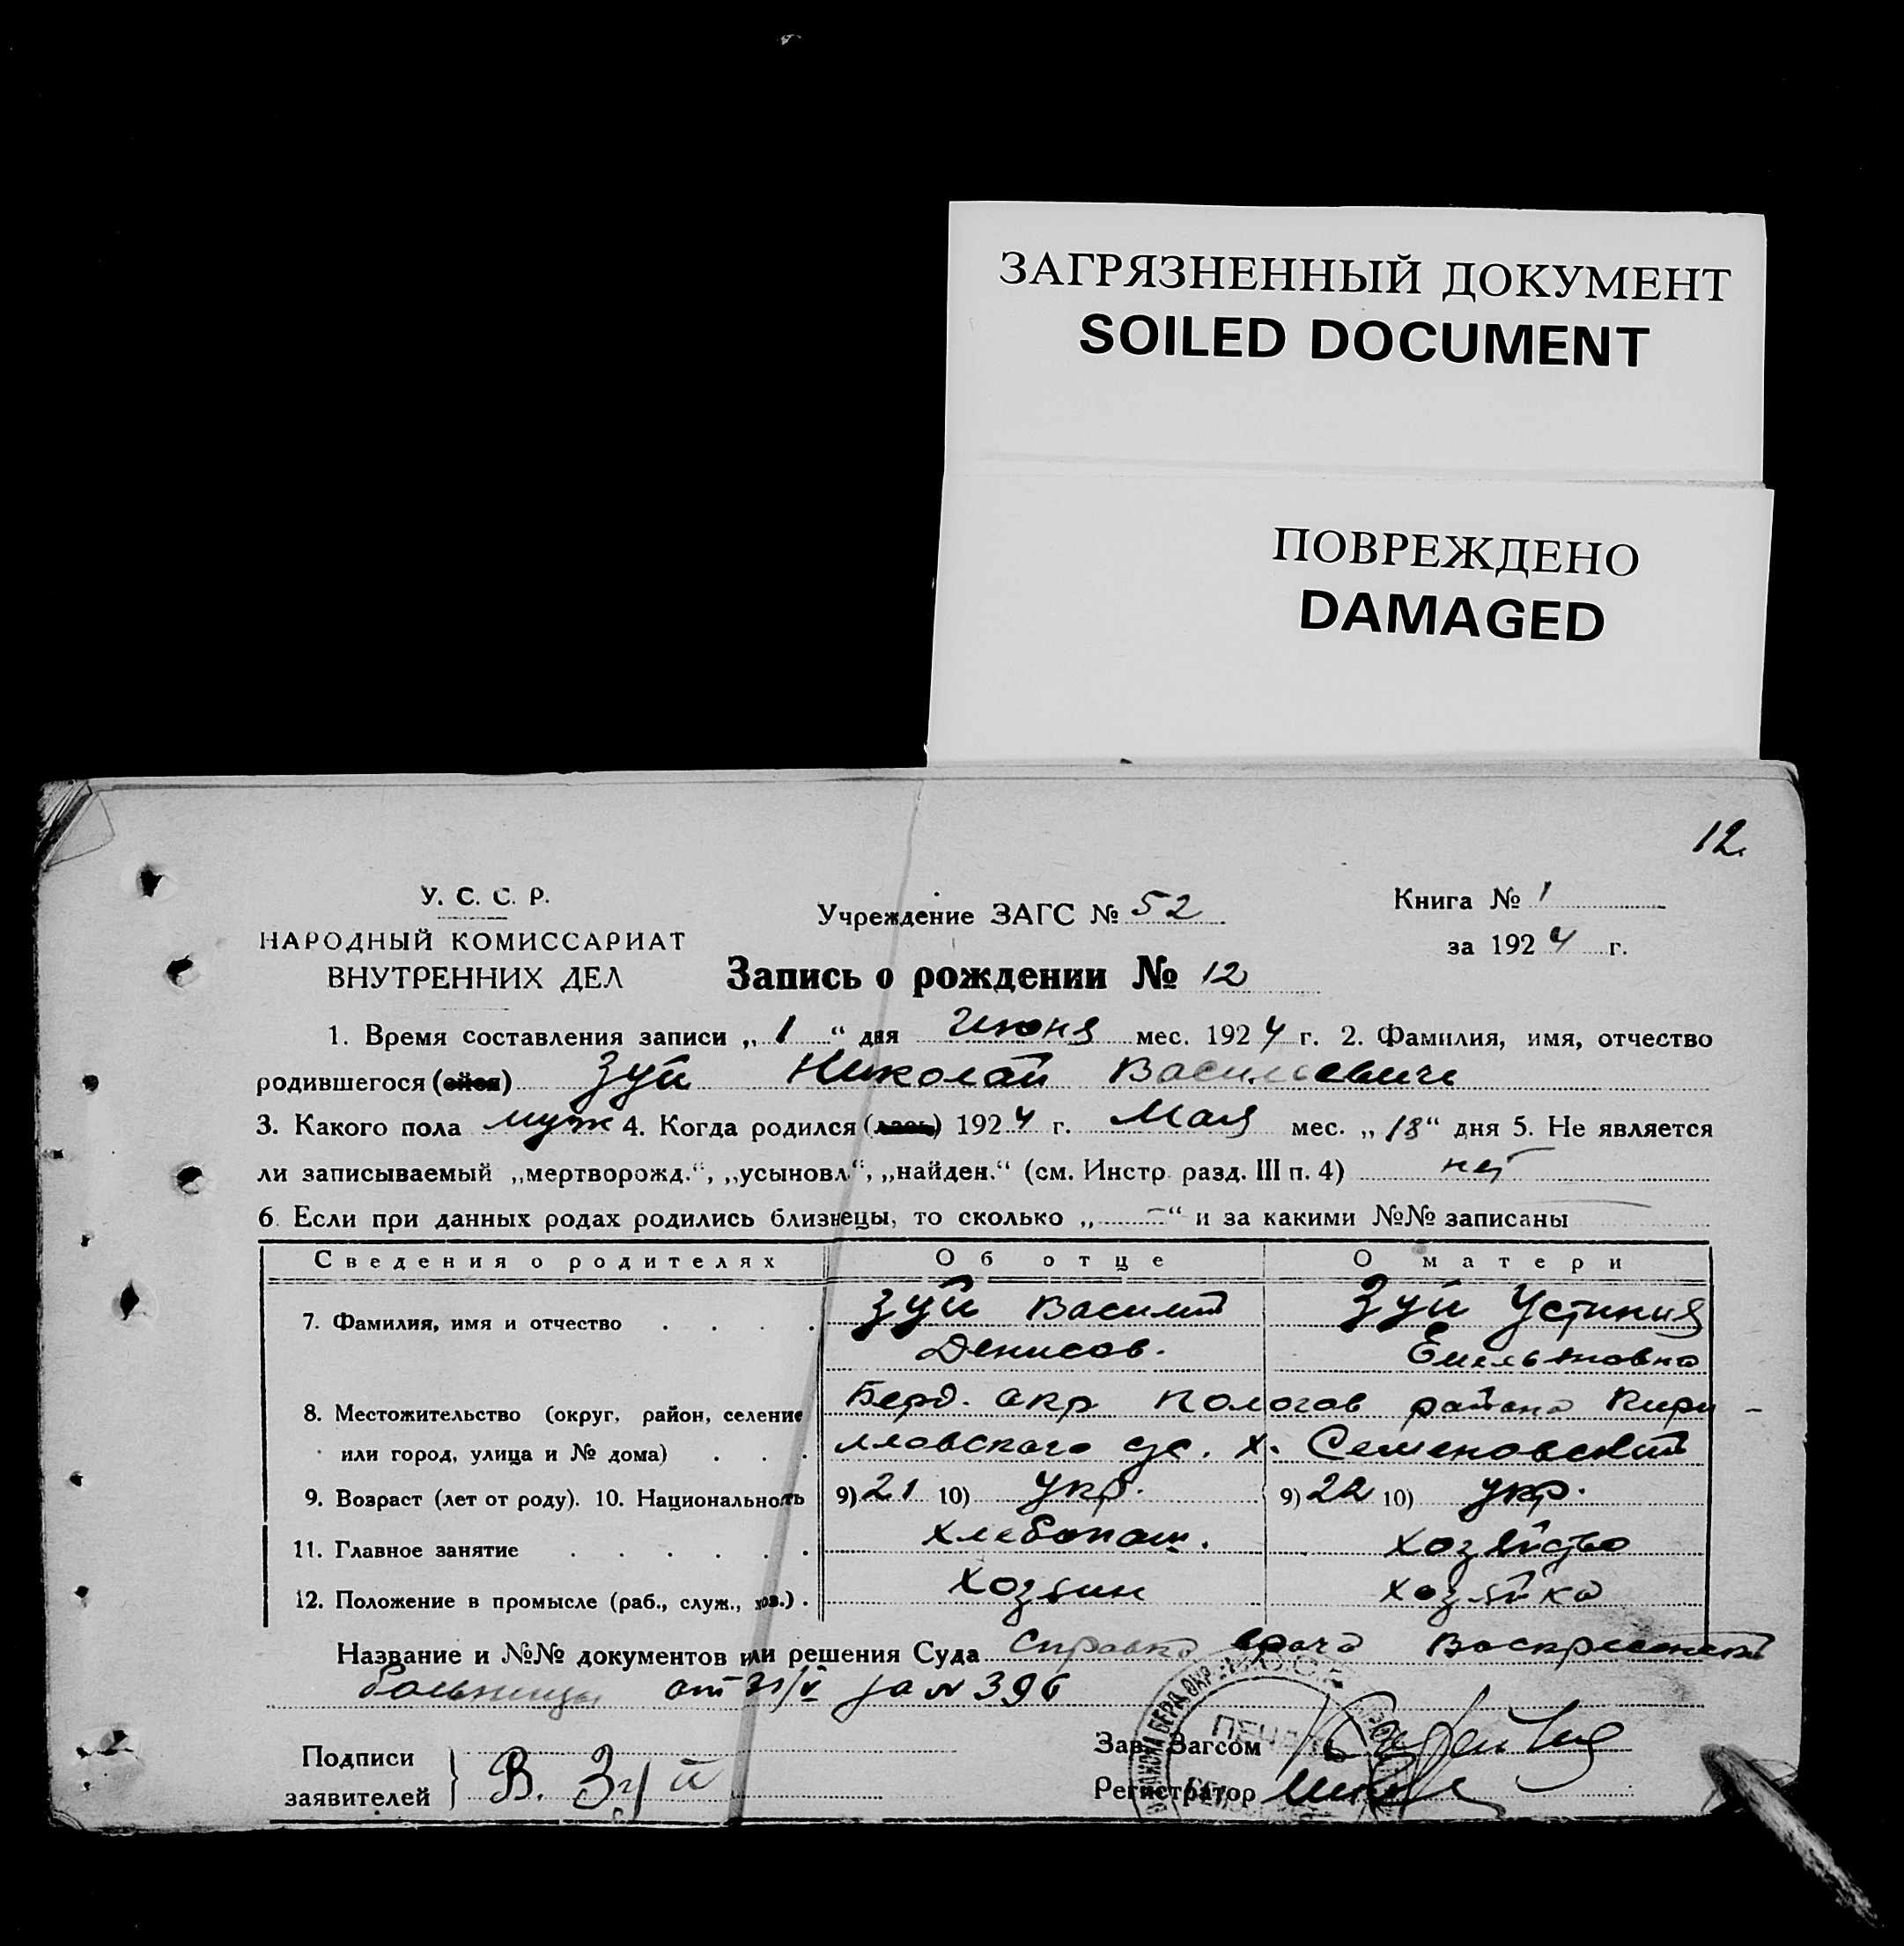 ЗАГРЯЗНЕННЫЙ ДОКУМЕНТ
SOILED DOCUMENT
ПОВРЕЖДЕНО
DAMAGED
12.
У. С. С. Р.
НАРОДНЫЙ КОМИССАРИАТ
ВНУТРЕННИХ ДЕЛ
Учреждение ЗАГС № 52
Книга № 1
за 1924 г.
Запись о рождении № 12
1. Время составления записи „ 1 “ дня Июня мес. 1924 г. 2. Фамилия, имя, отчество
родившегося (ейся) Зуй Николай Васильевич
3. Какого пола муж 4. Когда родился (лась) 1924 г. Мая мес. „ 18 “ дня 5. Не является
ли записываемый „мертворожд.“, „усыновл.“, „найден.“ (см. Инстр. разд. III п. 4) нет
6. Если при данных родах родились близнецы, то сколько „ — “ и за какими №№ записаны
Сведения о родителях Об отце О матери
7. Фамилия, имя и отчество Зуй Василий Зуй Устиния
Денисов. Емельяновна
8. Местожительство (округ, район, селение Берд. окр Пологов района Кири-
или город, улица и № дома) лловского с/с. х. Семеновский
9. Возраст (лет от роду). 10. Национальность 9) 21 10) Укр. 9) 22 10) Укр.
11. Главное занятие хлебопаш. хозяйство
12. Положение в промысле (раб., служ., хоз.) хозяин хозяйка
Название и №№ документов или решения Суда Справка врача Воскресенской
больницы от 31/V за № 396
Подписи
заявителей } В. Зуй
Зав. Загсом
Регистратор